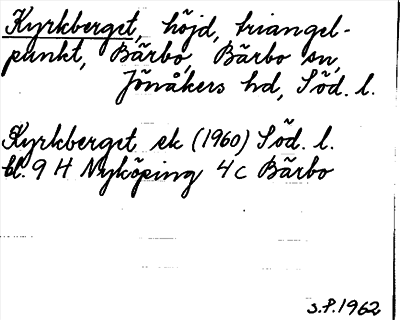 Kyrkberget, höjd, triangel-
punkt, Bärbo, Bärbo sn,
Jönåkers hd, Söd. l.
Kyrkberget ek (1960) Söd. l.
bl. 9 H Nyköping 4 c Bärbo
S.P. 1962